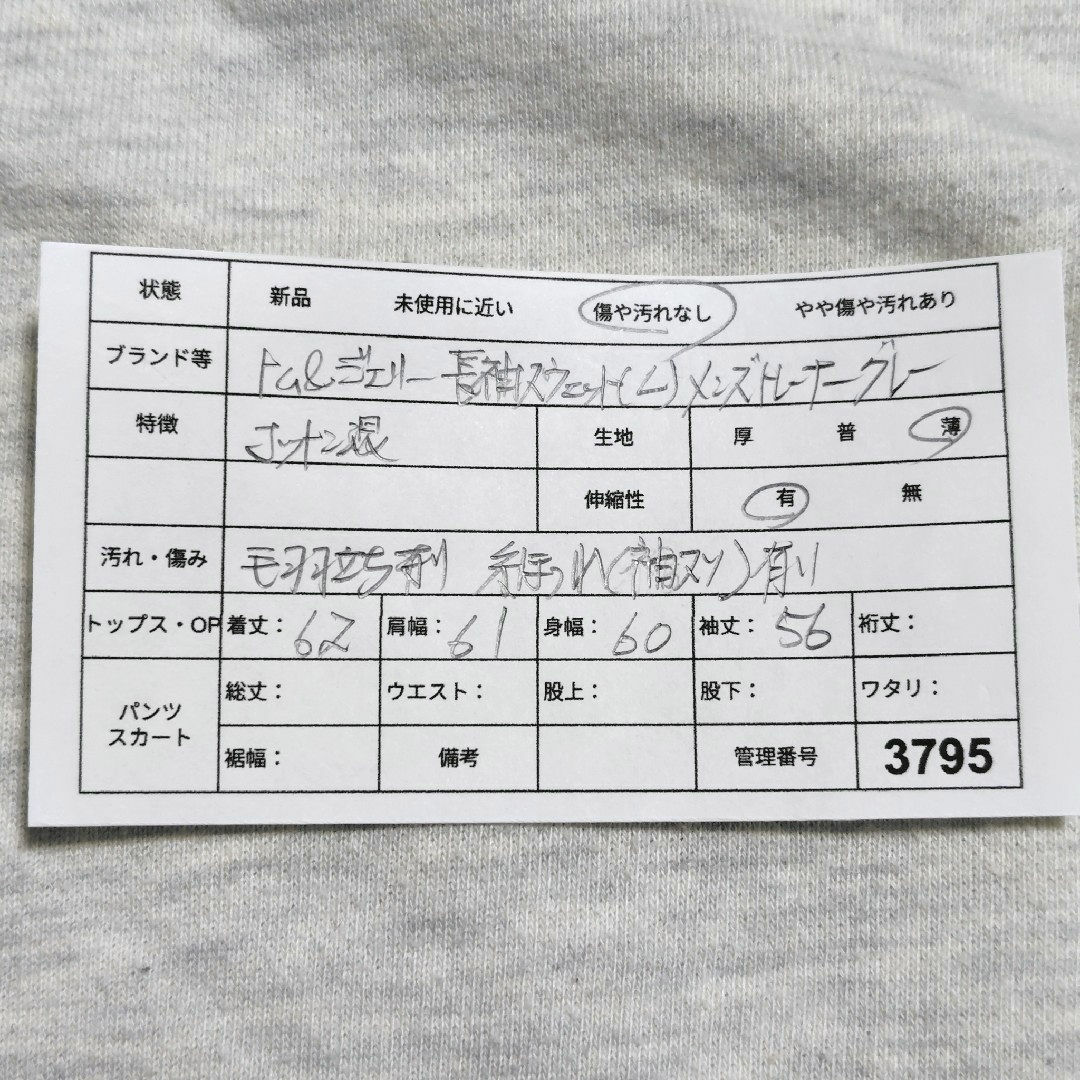 状態 新品 未使用に近い 傷や汚れなし やや傷や汚れあり
ブランド等 トム&ジェリー 長袖スウェット(L)メンズトレーナーグレー
特徴 生地 厚 普 薄
伸縮性 有 無
汚れ・傷み 毛羽立ち有り 糸ほつれ(袖スソ)有り
トップス・OP 着丈: 62 肩幅: 61 身幅: 60 袖丈: 56 裄丈:
パンツ
スカート
総丈: ウエスト: 股上: 股下: ワタリ:
裾幅: 備考 管理番号 3795